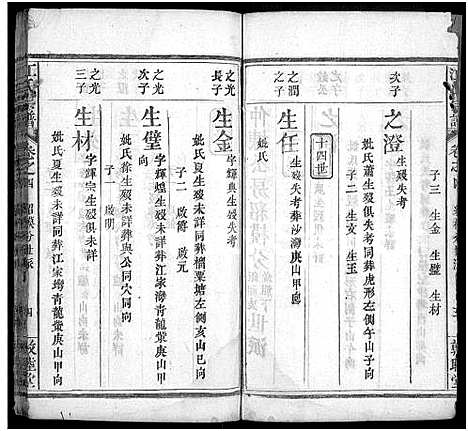 子三 生金 生璧 生材
次子
之澄
生殁失考
妣氏蕭生殁俱失考同葬虎形左側午山子向
子二 生文 生玉
十四世
之潤
長子
生任
生殁失考葬沙灣庚山甲向
妣氏
之光
長子
生金
字輝典生殁失考
妣氏夏生殁未詳同葬榴栗塘左側亥山巳向
子二 啟傳 啟元
之光
次子
生璧
字輝煌生殁未詳葬江家塆青龍嘴庚山甲向
妣氏徐生殁未詳葬與公同穴同向
子一 啟明
之光
三子
生材
字輝宗生殁未詳
妣氏夏生殁未詳同葬江家塆青龍嘴庚山甲向
江氏宗譜
卷之四
四
敦睦堂